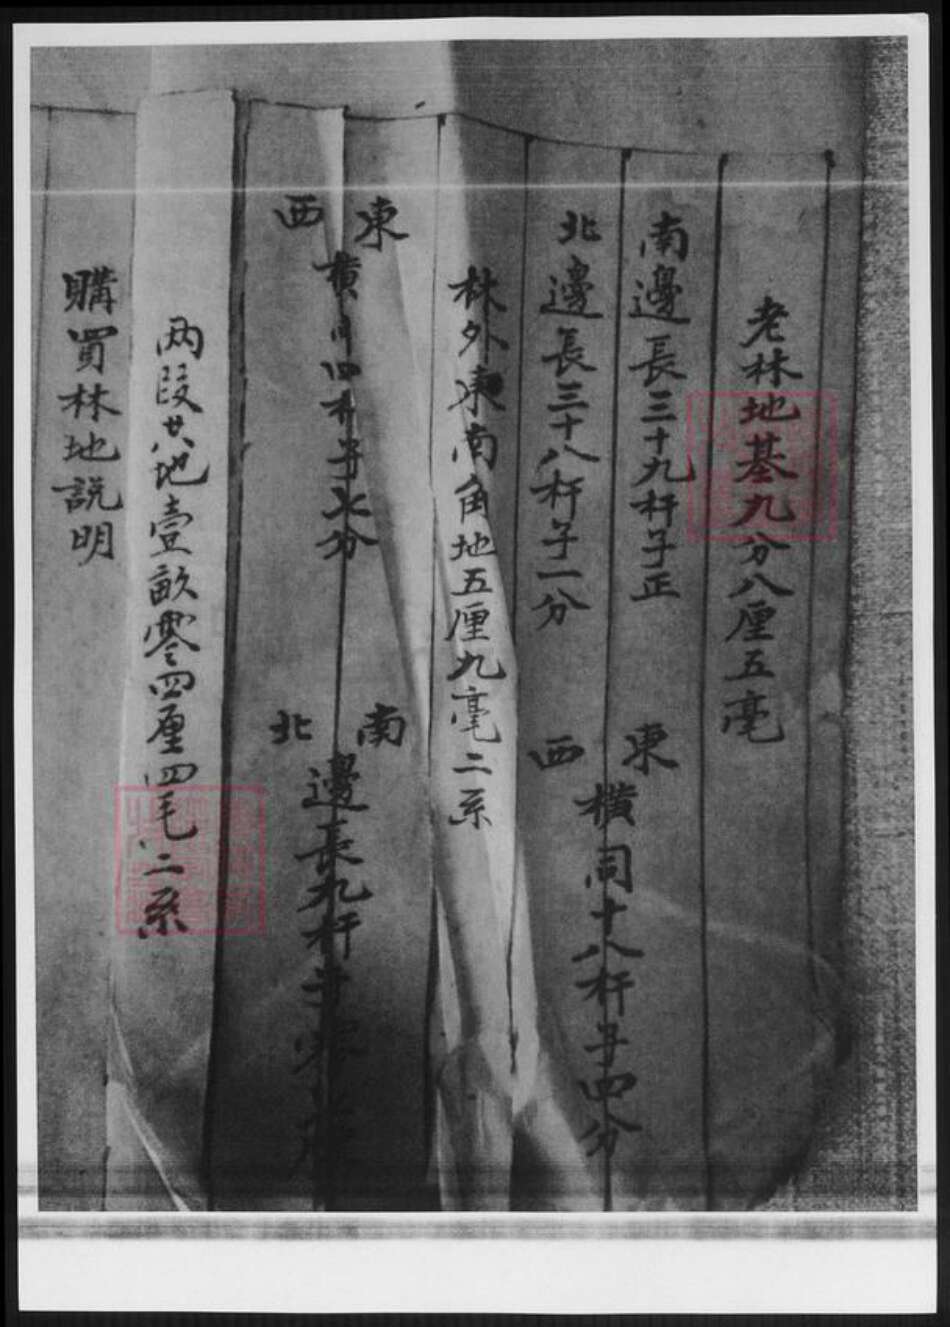 老林地基九分八厘五毫
南邊長三十九杆子正
北邊長三十八杆子一分
東西橫同十八杆子四分
林外東南角地五厘九毫二系
東西橫同四杆子七分
南北邊長九杆子
两段共地壹畝零四厘四毛二系
購買林地説明